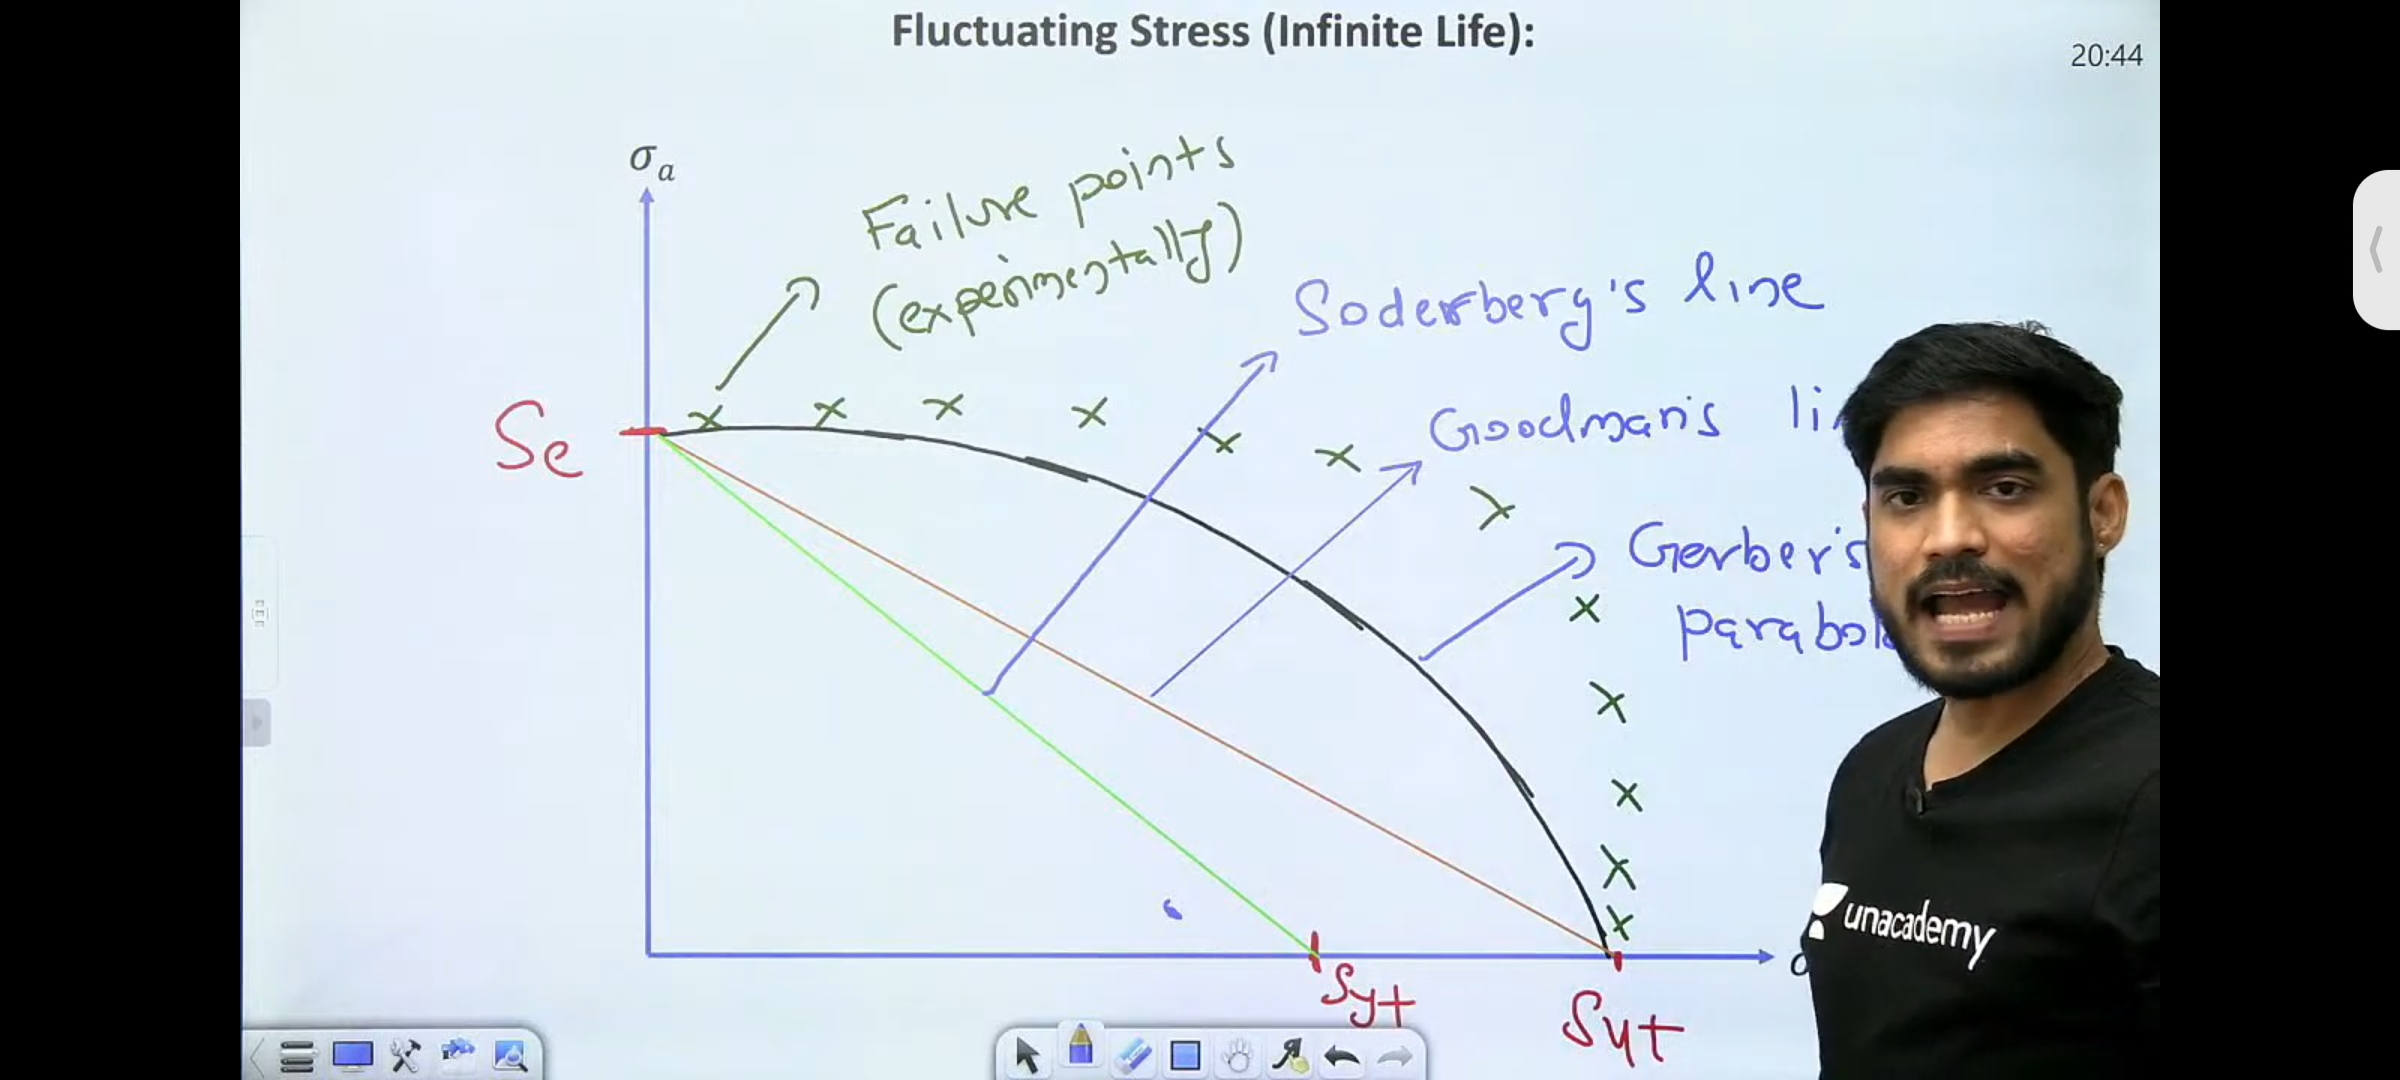 Fluctuating Stress (Infinite Life):
20:44
σa
Failure points
(experimentally)
Soderberg's line
Goodman's li
Gerber's
parabol
Se
Syt
Sut
unacademy